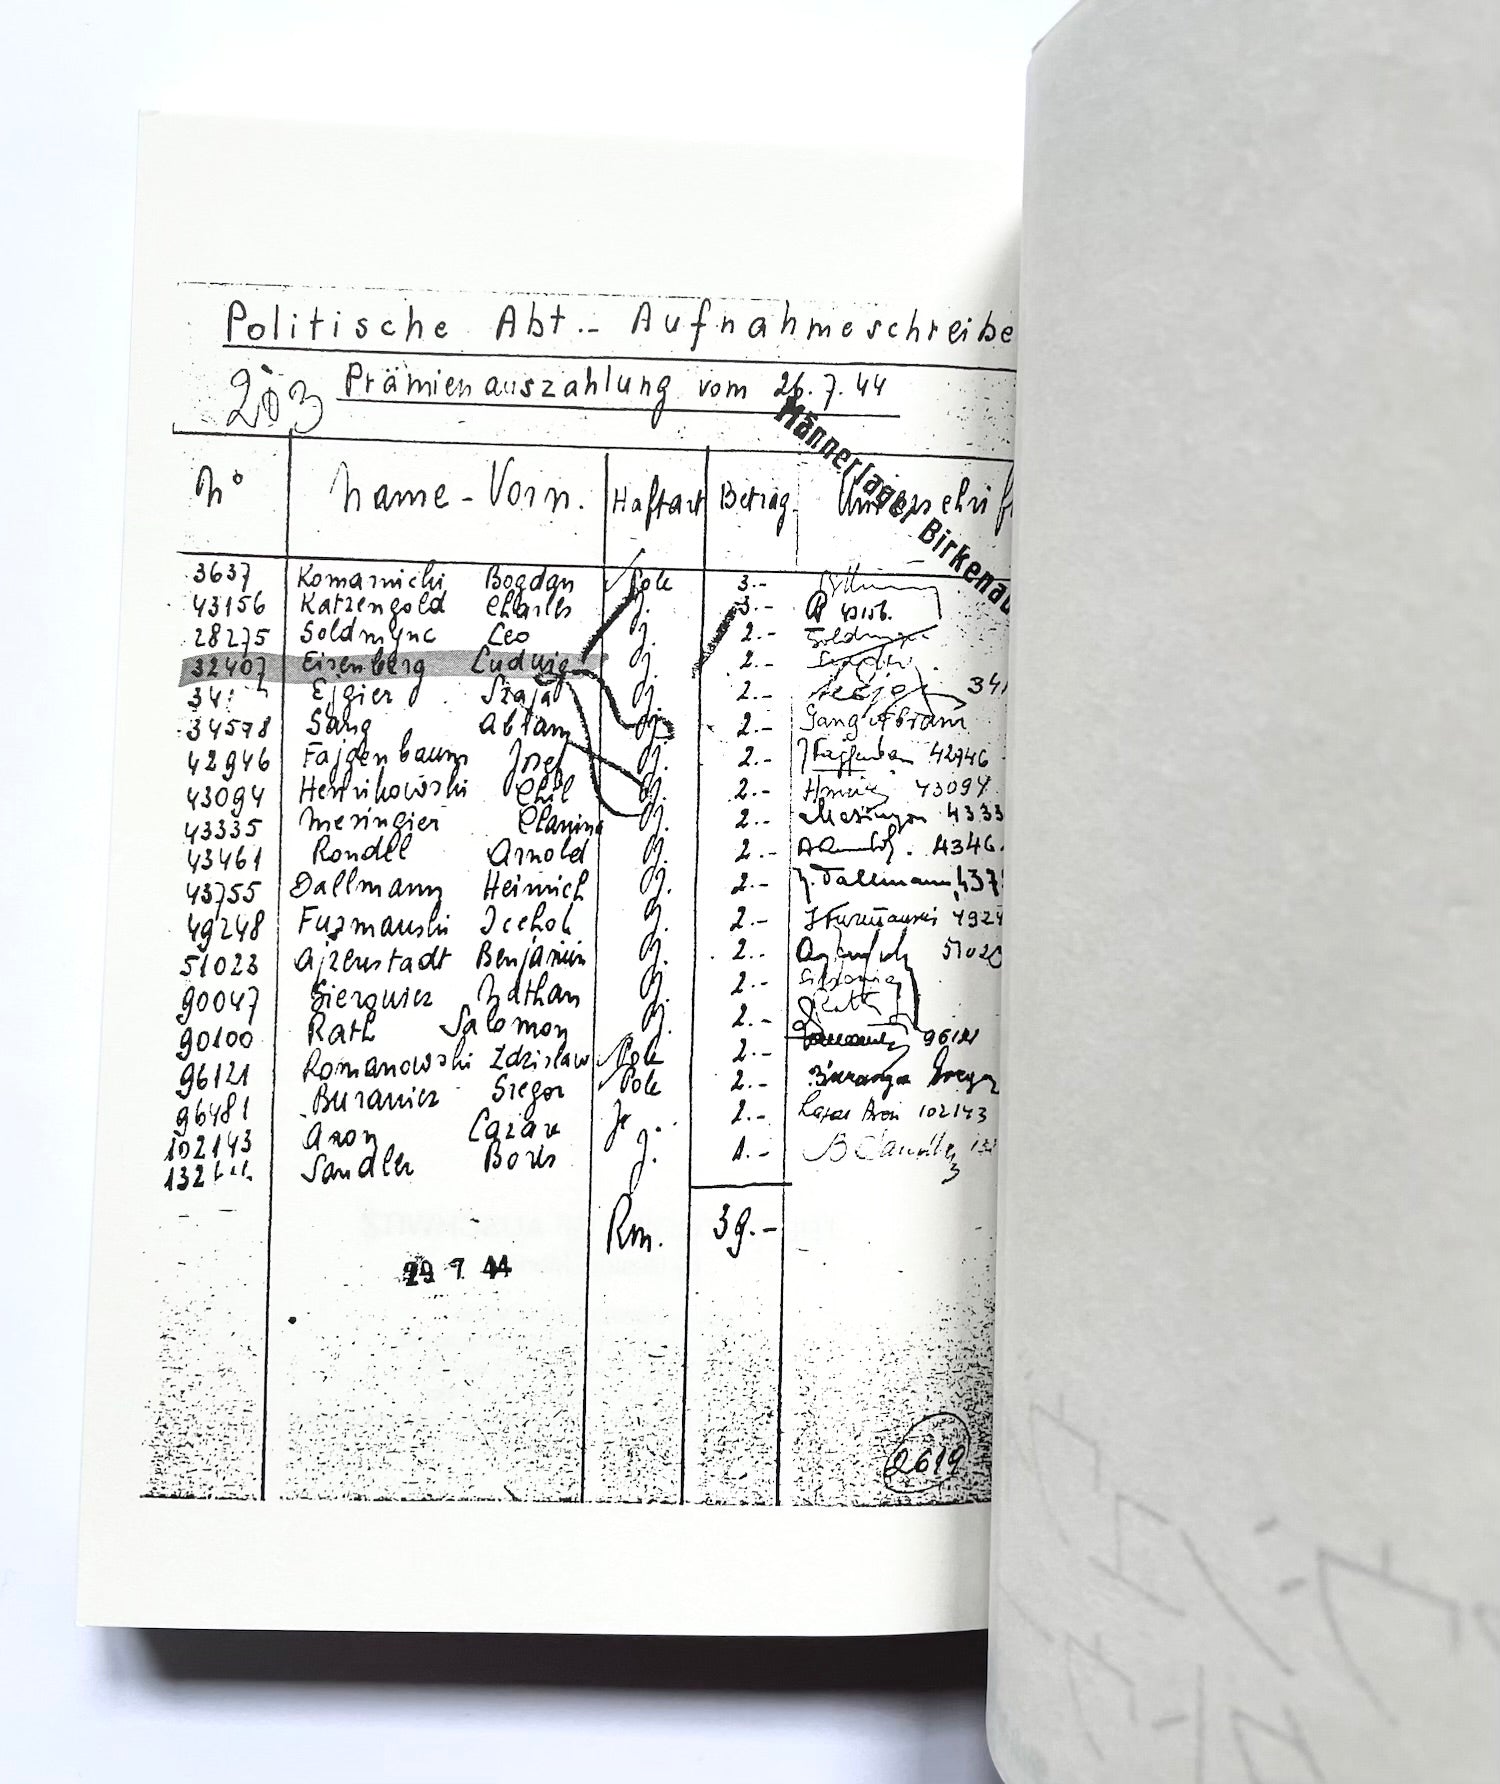 Politische Abt.- Aufnahmeschreibe
203 Prämienauszahlung vom 26.7.44
Männerlager Birkenau
N° Name - Vorn. Haftart Betrag
3637 Komarnicki Bogdan Pole 3.-
43156 Katzengold Charles J. 3.- 43156.
28275 Leo J. 2.-
32407 Eisenberg Ludwig J. 2.-
Ejgier Szaja J. 2.-
34578 Sang Abram J. 2.- Sang Abram
42946 Fajgenbaum Josef J. 2.- 42946
43094 Henrikowski Chil J. 2.- 43094
43335 Meringier J. 2.- 4333
43461 Rondel Arnold J. 2.- 4346
43755 Dallmann Heinrich J. 2.- Dallmann 437
49248 Furmanski Icchok J. 2.- Furmanski 4924
51023 Ajzenstadt Benjamin J. 2.- 5102
90047 Nathan J. 2.-
90100 Rath Salomon J. 2.- Rath
96121 Romanowski Zdzislaw Pole 2.- 96121
96481 Buraniez Gregor Pole 2.-
102143 Aron Lazare J. 2.- Lazar Aron 102143
Sandler Boris J. 1.-
Rm. 39.-
29 7 44
2619